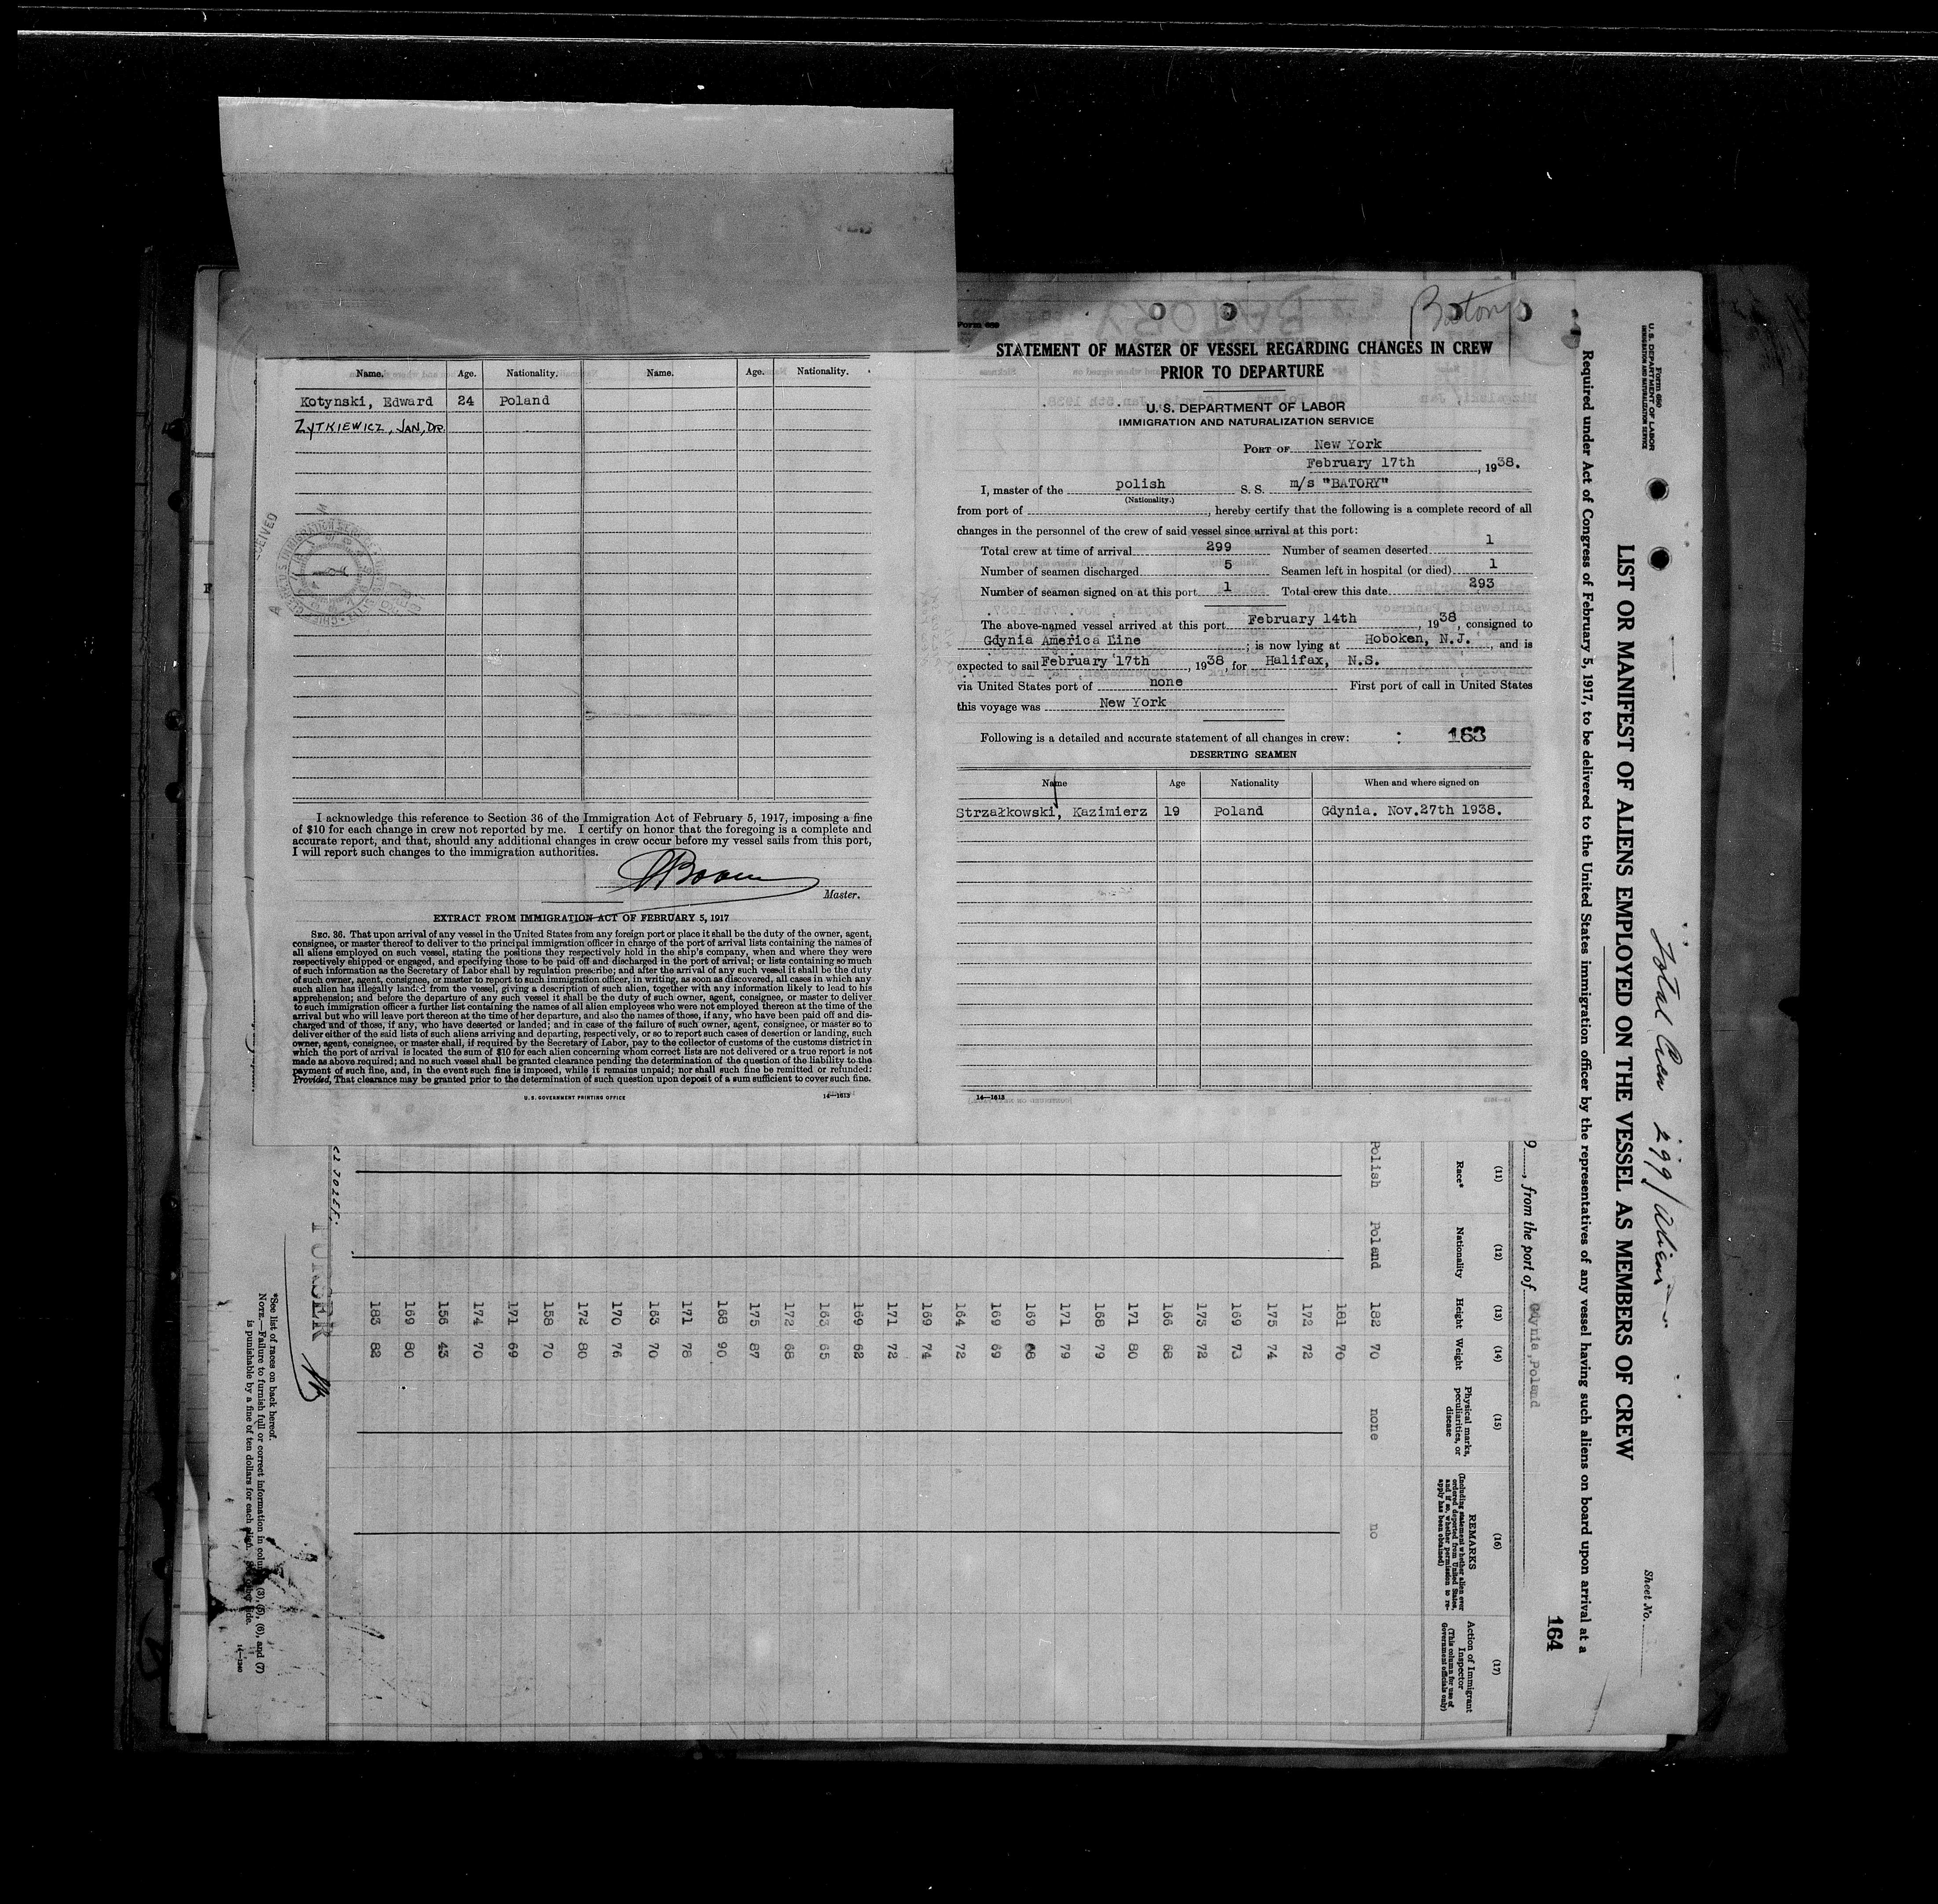 Name. Age. Nationality. Name. Age. Nationality.
Kotynski, Edward 24 Poland
ZYTKIEWICZ, JAN, DR.
I acknowledge this reference to Section 36 of the Immigration Act of February 5, 1917, imposing a fine
of $10 for each change in crew not reported by me. I certify on honor that the foregoing is a complete and
accurate report, and that, should any additional changes in crew occur before my vessel sails from this port,
I will report such changes to the immigration authorities.
Master.
EXTRACT FROM IMMIGRATION ACT OF FEBRUARY 5, 1917
SEC. 36. That upon arrival of any vessel in the United States from any foreign port or place it shall be the duty of the owner, agent,
consignee, or master thereof to deliver to the principal immigration officer in charge of the port of arrival lists containing the names of
all aliens employed on such vessel, stating the positions they respectively hold in the ship's company, when and where they were
respectively shipped or engaged, and specifying those to be paid off and discharged in the port of arrival; or lists containing so much
of such information as the Secretary of Labor shall by regulation prescribe; and after the arrival of any such vessel it shall be the duty
of such owner, agent, consignee, or master to report to such immigration officer, in writing, as soon as discovered, all cases in which any
such alien has illegally landed from the vessel, giving a description of such alien, together with any information likely to lead to his
apprehension; and before the departure of any such vessel it shall be the duty of such owner, agent, consignee, or master to deliver
to such immigration officer a further list containing the names of all alien employees who were not employed thereon at the time of the
arrival but who will leave port thereon at the time of her departure, and also the names of those, if any, who have been paid off and dis-
charged and of those, if any, who have deserted or landed; and in case of the failure of such owner, agent, consignee, or master so to
deliver either of the said lists of such aliens arriving and departing, respectively, or so to report such cases of desertion or landing, such
owner, agent, consignee, or master shall, if required by the Secretary of Labor, pay to the collector of customs of the customs district in
which the port of arrival is located the sum of $10 for each alien concerning whom correct lists are not delivered or a true report is not
made as above required; and no such vessel shall be granted clearance pending the determination of the question of the liability to the
payment of such fine, and, in the event such fine is imposed, while it remains unpaid; nor shall such fine be remitted or refunded:
Provided, That clearance may be granted prior to the determination of such question upon deposit of a sum sufficient to cover such fine.
U. S. GOVERNMENT PRINTING OFFICE 14—1613
Batory
Form 689
STATEMENT OF MASTER OF VESSEL REGARDING CHANGES IN CREW
PRIOR TO DEPARTURE
U. S. DEPARTMENT OF LABOR
IMMIGRATION AND NATURALIZATION SERVICE
PORT OF New York
February 17th, 1938.
I, master of the polish S. S. m/s "BATORY"
(Nationality.)
from port of , hereby certify that the following is a complete record of all
changes in the personnel of the crew of said vessel since arrival at this port:
Total crew at time of arrival 299 Number of seamen deserted 1
Number of seamen discharged 5 Seamen left in hospital (or died) 1
Number of seamen signed on at this port 1 Total crew this date 293
The above-named vessel arrived at this port February 14th, 1938, consigned to
Gdynia America Line ; is now lying at Hoboken, N.J., and is
expected to sail February 17th, 1938, for Halifax, N.S.
via United States port of none First port of call in United States
this voyage was New York
Following is a detailed and accurate statement of all changes in crew: : 163
DESERTING SEAMEN
Name Age Nationality When and where signed on
Strzałkowski, Kazimierz 19 Poland Gdynia. Nov.27th 1938.
14—1613
Form 680
U. S. DEPARTMENT OF LABOR
IMMIGRATION AND NATURALIZATION SERVICE
Total Crew 299/Aliens
Sheet No.
LIST OR MANIFEST OF ALIENS EMPLOYED ON THE VESSEL AS MEMBERS OF CREW
Required under Act of Congress of February 5, 1917, to be delivered to the United States immigration officer by the representatives of any vessel having such aliens on board upon arrival at a
164
9 , from the port of Gdynia, Poland
(11) (12) (13) (14) (15) (16) (17)
Race* Nationality Height Weight Physical marks, peculiarities, or disease REMARKS (Including statement whether alien ever ordered deported from United States, and if so, whether permission to re-apply has been obtained) Action of Immigrant Inspector (This column for use of Government officials only)
Polish Poland 182 70 none no
181 70
172 72
175 74
169 73
173 72
166 68
171 80
168 79
171 79
169 68
169 69
164 72
169 74
171 72
169 62
163 65
172 68
175 87
168 90
171 78
163 70
170 76
172 80
158 70
171 69
174 70
156 43
169 80
183 82
PURSER
*See list of races on back hereof.
NOTE.—Failure to furnish full or correct information in columns (3), (5), (6), and (7)
is punishable by a fine of ten dollars for each alien. See other side.
14—1240